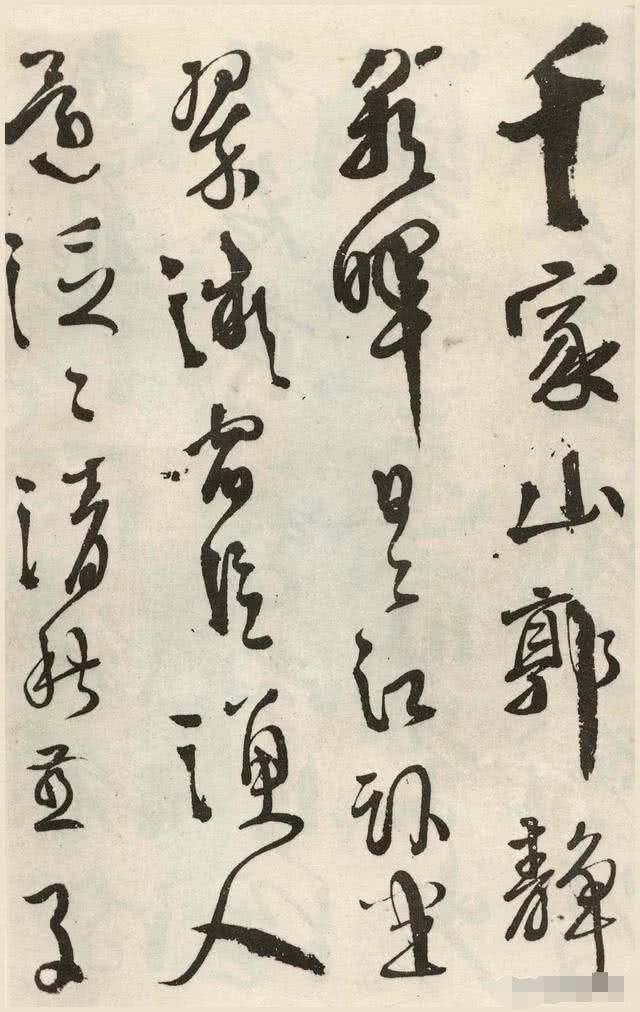 千家山郭靜
朝暉日〻江坐
翠微宿信漁人
還泛〻清秋燕子